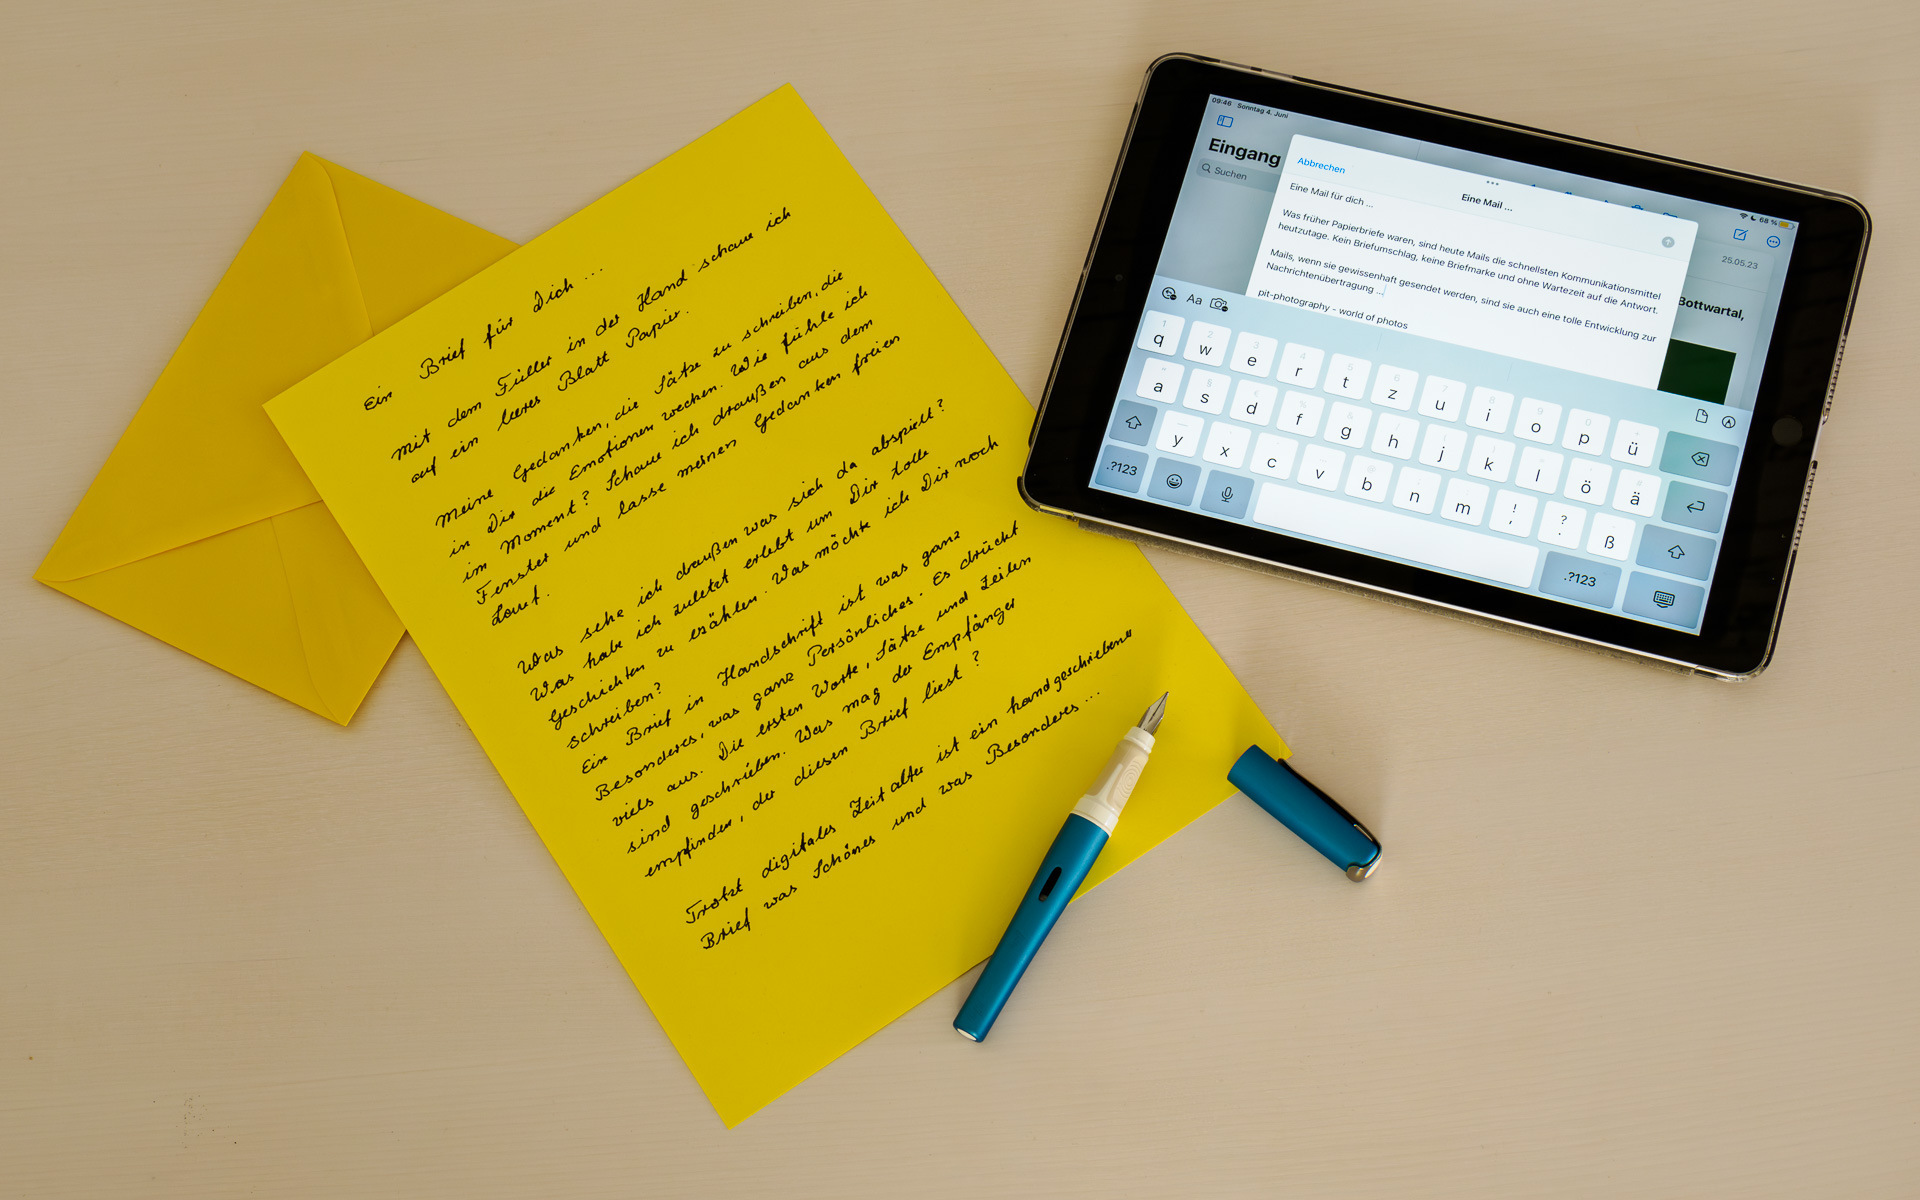 Ein Brief für Dich ...
Mit dem Füller in der Hand schaue ich
auf ein leeres Blatt Papier.
Meine Gedanken, die Sätze zu schreiben, die
in Dir die Emotionen wecken. Wie fühle ich
im Moment? Schaue ich draußen aus dem
Fenster und lasse meinen Gedanken freien
Lauf.
Was sehe ich draußen was sich da abspielt?
Was habe ich zuletzt erlebt um Dir tolle
Geschichten zu erzählen. Was möchte ich Dir noch
schreiben?
Ein Brief in Handschrift ist was ganz
Besonderes, was ganz Persönliches. Es drückt
viels aus. Die ersten Worte, Sätze und Zeilen
sind geschrieben. Was mag der Empfänger
empfinden, der diesen Brief liest?
Trotzt digitales Zeitalter ist ein handgeschriebener
Brief was Schönes und was Besonderes ...
09:46 Sonntag 4. Juni
68 %
Eingang
Suchen
Abbrechen
Eine Mail ...
Eine Mail für dich ...
Was früher Papierbriefe waren, sind heute Mails die schnellsten Kommunikationsmittel
heutzutage. Kein Briefumschlag, keine Briefmarke und ohne Wartezeit auf die Antwort.
Mails, wenn sie gewissenhaft gesendet werden, sind sie auch eine tolle Entwicklung zur
Nachrichtenübertragung ...
pit-photography - world of photos
25.05.23
Bottwartal,
Aa
1 2 3 4 5 6 7 8 9 0
q w e r t z u i o p ü
a s d f g h j k l ö ä
y x c v b n m ! , ? . ß
.?123 .?123